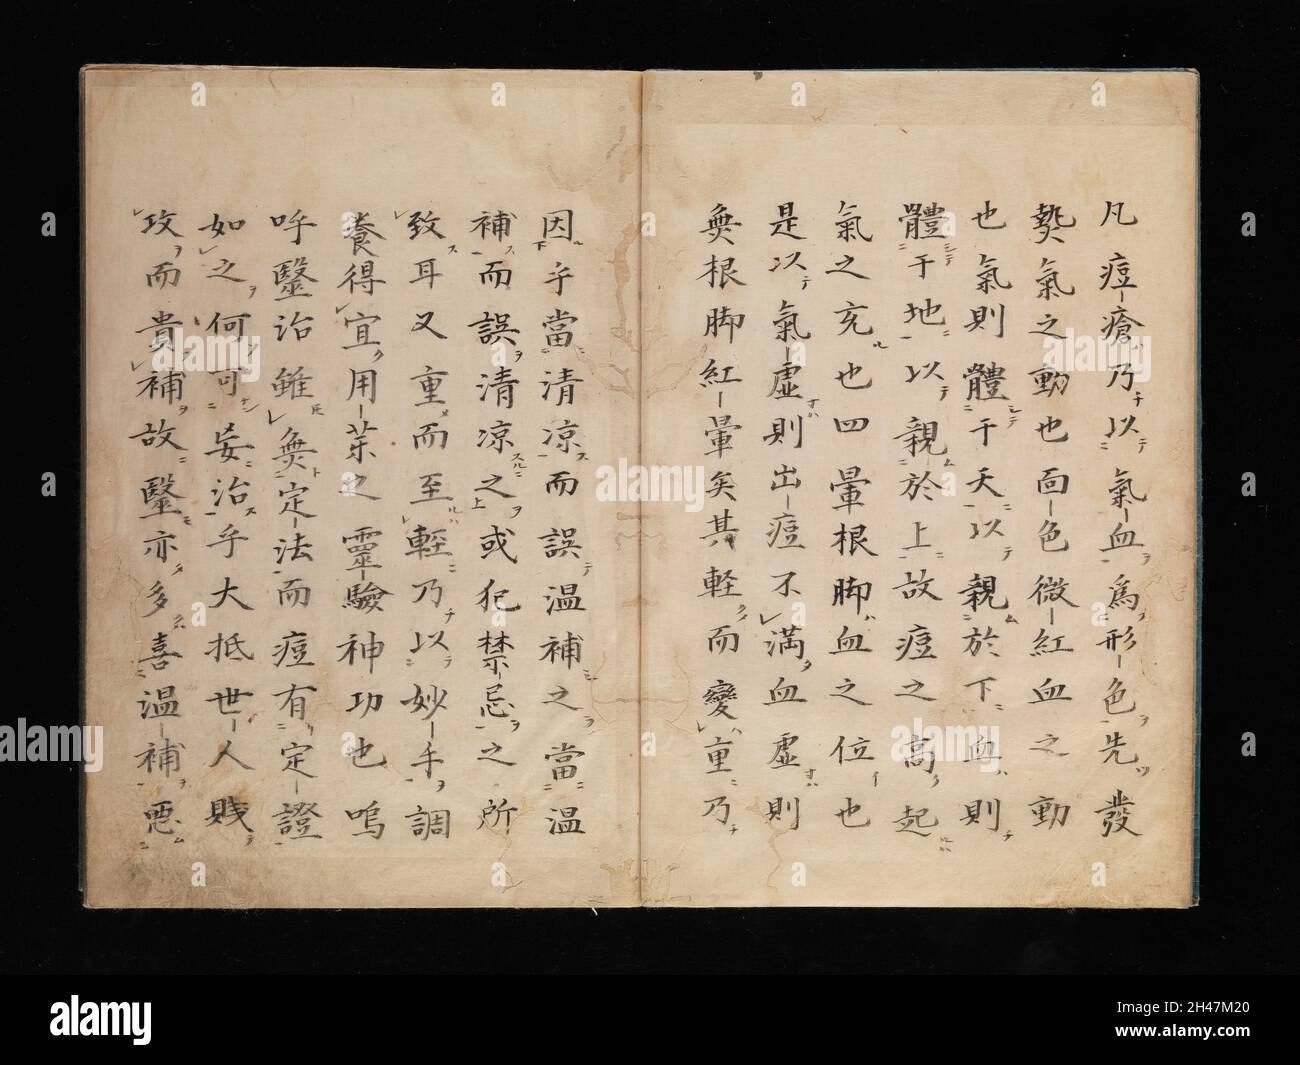 凡痘瘡乃以氣血爲形色先發
熱氣之動也面色微紅血之動
也氣則體于天以親於下血則
體于地以親於上故痘之高起
氣之充也四暈根脚血之位也
是以氣虛則出痘不滿血虛則
無根脚紅暈矣其軽而變重乃
因乎當清凉而誤温補之當温
補而誤清凉之或犯禁忌之所
致耳又重而至軽乃以妙手調
養得宜用菜之靈驗神功也嗚
呼醫治雖無定法而痘有定證
如之何可妄治乎大抵世人賎
攻而貴補故醫亦多喜温補悪
alamy
Image ID: 2H47M20
www.alamy.com